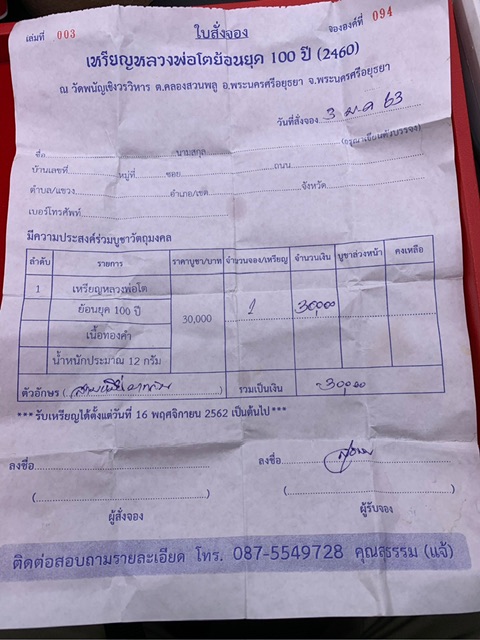 เล่มที่ 003
ใบสั่งจอง
จององค์ที่ 094
เหรียญหลวงพ่อโตย้อนยุค 100 ปี (2460)
ณ วัดพนัญเชิงวรวิหาร ต.คลองสวนพลู อ.พระนครศรีอยุธยา จ.พระนครศรีอยุธยา
วันที่สั่งจอง 3 ม.ค 63
(กรุณาเขียนตัวบรรจง)
ชื่อ นามสกุล
บ้านเลขที่ หมู่ที่ ซอย ถนน
ตำบล/แขวง อำเภอ/เขต จังหวัด
เบอร์โทรศัพท์
มีความประสงค์ร่วมบูชาวัตถุมงคล
ลำดับ รายการ ราคาบูชา/บาท จำนวนจอง/เหรียญ จำนวนเงิน บูชาล่วงหน้า คงเหลือ
1 เหรียญหลวงพ่อโต
ย้อนยุค 100 ปี 30,000 1 30,000
เนื้อทองคำ
น้ำหนักประมาณ 12 กรัม
ตัวอักษร (สามหมื่นบาทถ้วน) รวมเป็นเงิน 30,000
*** รับเหรียญได้ตั้งแต่วันที่ 16 พฤศจิกายน 2562 เป็นต้นไป ***
ลงชื่อ ลงชื่อ
( ) ( )
ผู้สั่งจอง ผู้รับจอง
ติดต่อสอบถามรายละเอียด โทร. 087-5549728 คุณสุธรรม (แจ้)